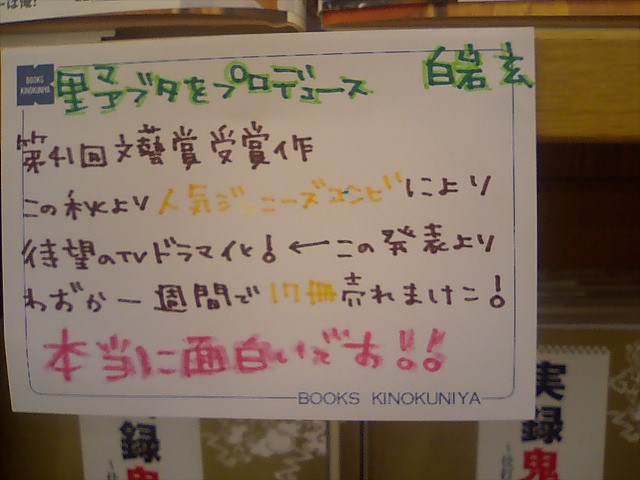 は俺!
BOOKS
KINOKUNIYA
野ブタをプロデュース 白岩玄
第41回文藝賞受賞作
この秋より人気ジャニーズコンビにより
待望のTVドラマ化!←この発表より
わずか一週間で17冊売れました!
本当に面白いです!!
BOOKS KINOKUNIYA
録鬼
実録鬼